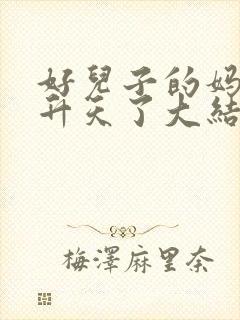 好兒子的妈
升天了大結
梅澤麻里奈